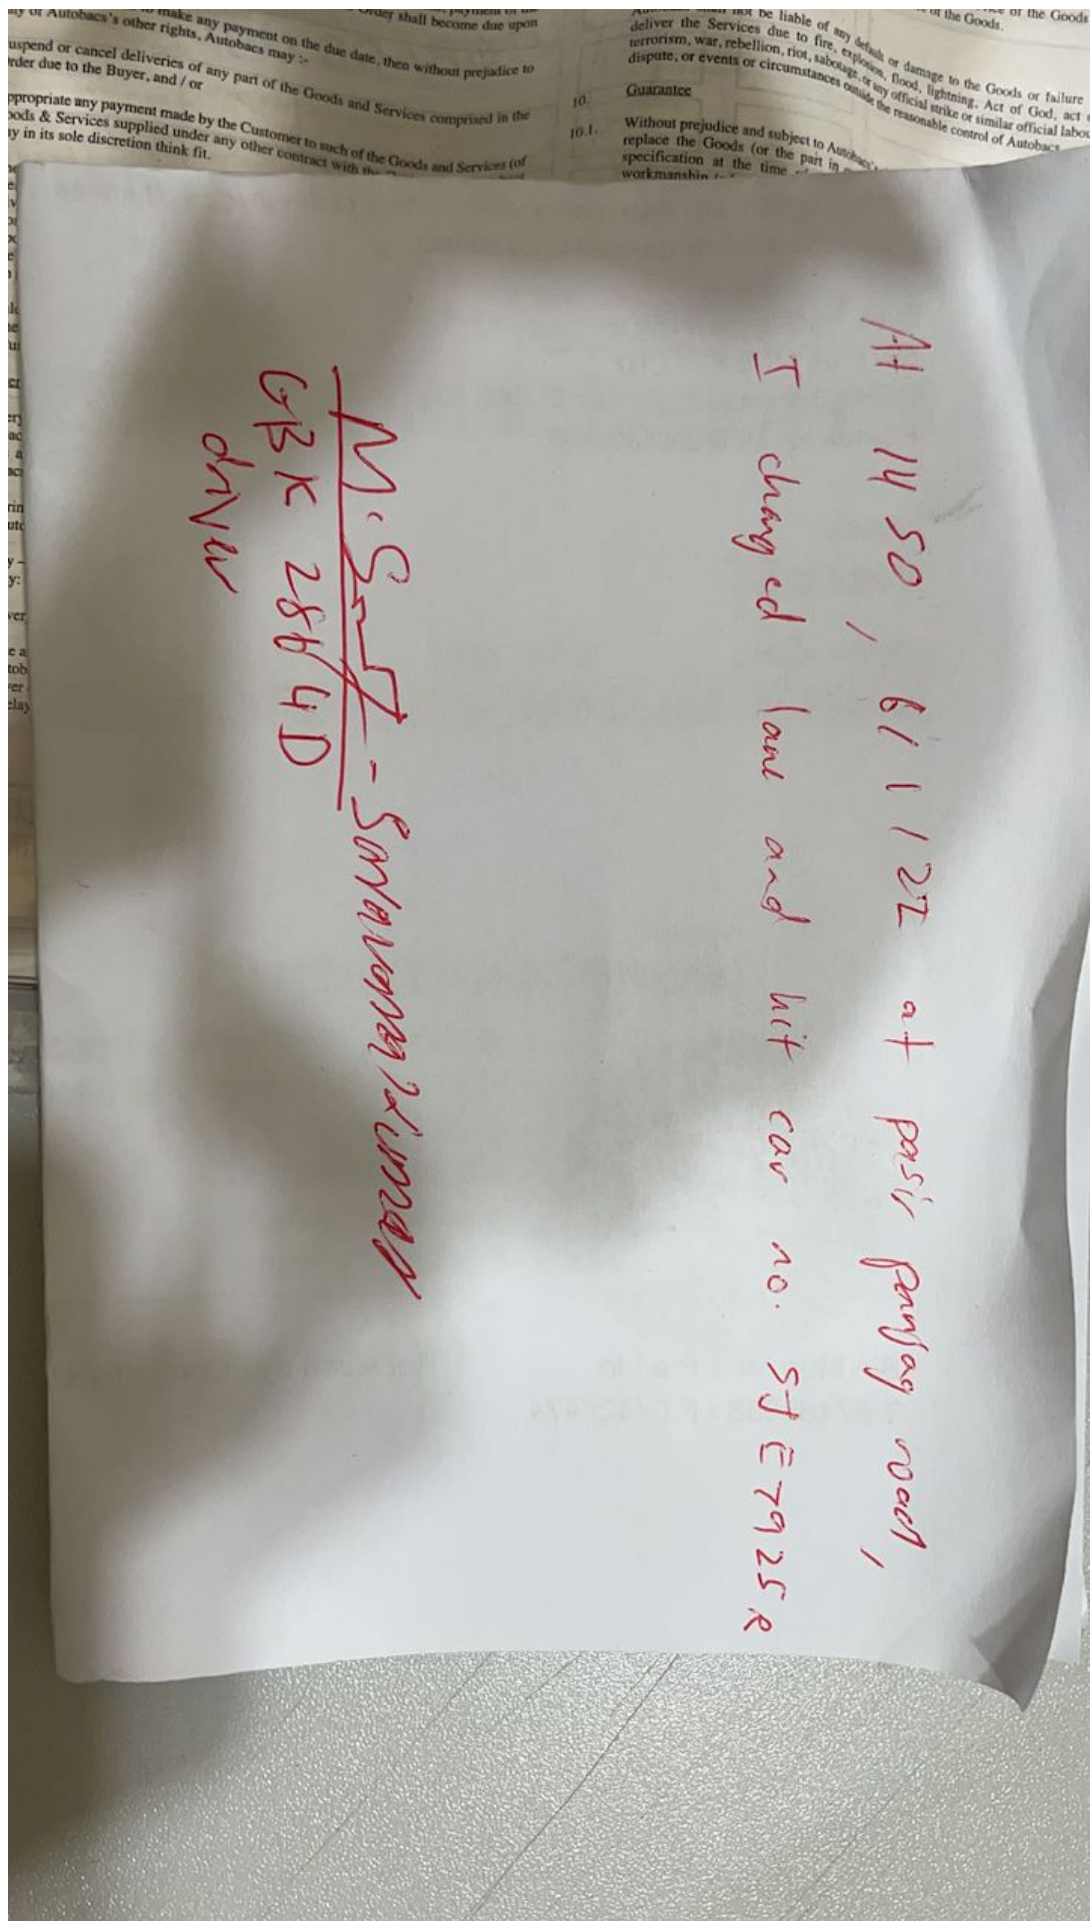 make any payment on the due date, then without prejudice to
of Autobacs's other rights, Autobacs may :-
uspend or cancel deliveries of any part of the Goods and Services comprised in the
rder due to the Buyer, and / or
ppropriate any payment made by the Customer to such of the Goods and Services (of
oods & Services supplied under any other contract with the
y in its sole discretion think fit.
order shall become due upon
of the Goods.
not be liable of any default or damage to the Goods or failure
deliver the Services due to fire, explosion, flood, lightning, Act of God, act
terrorism, war, rebellion, riot, sabotage, or any official strike or similar official labou
dispute, or events or circumstances outside the reasonable control of Autobacs
10. Guarantee
10.1. Without prejudice and subject to Autobacs's
replace the Goods (or the part in
specification at the time
workmanship
At 1450, 6/11/22 at pasir panjag road,
I changed lane and hit car no. SJE7925R
GBK 2864D
driver